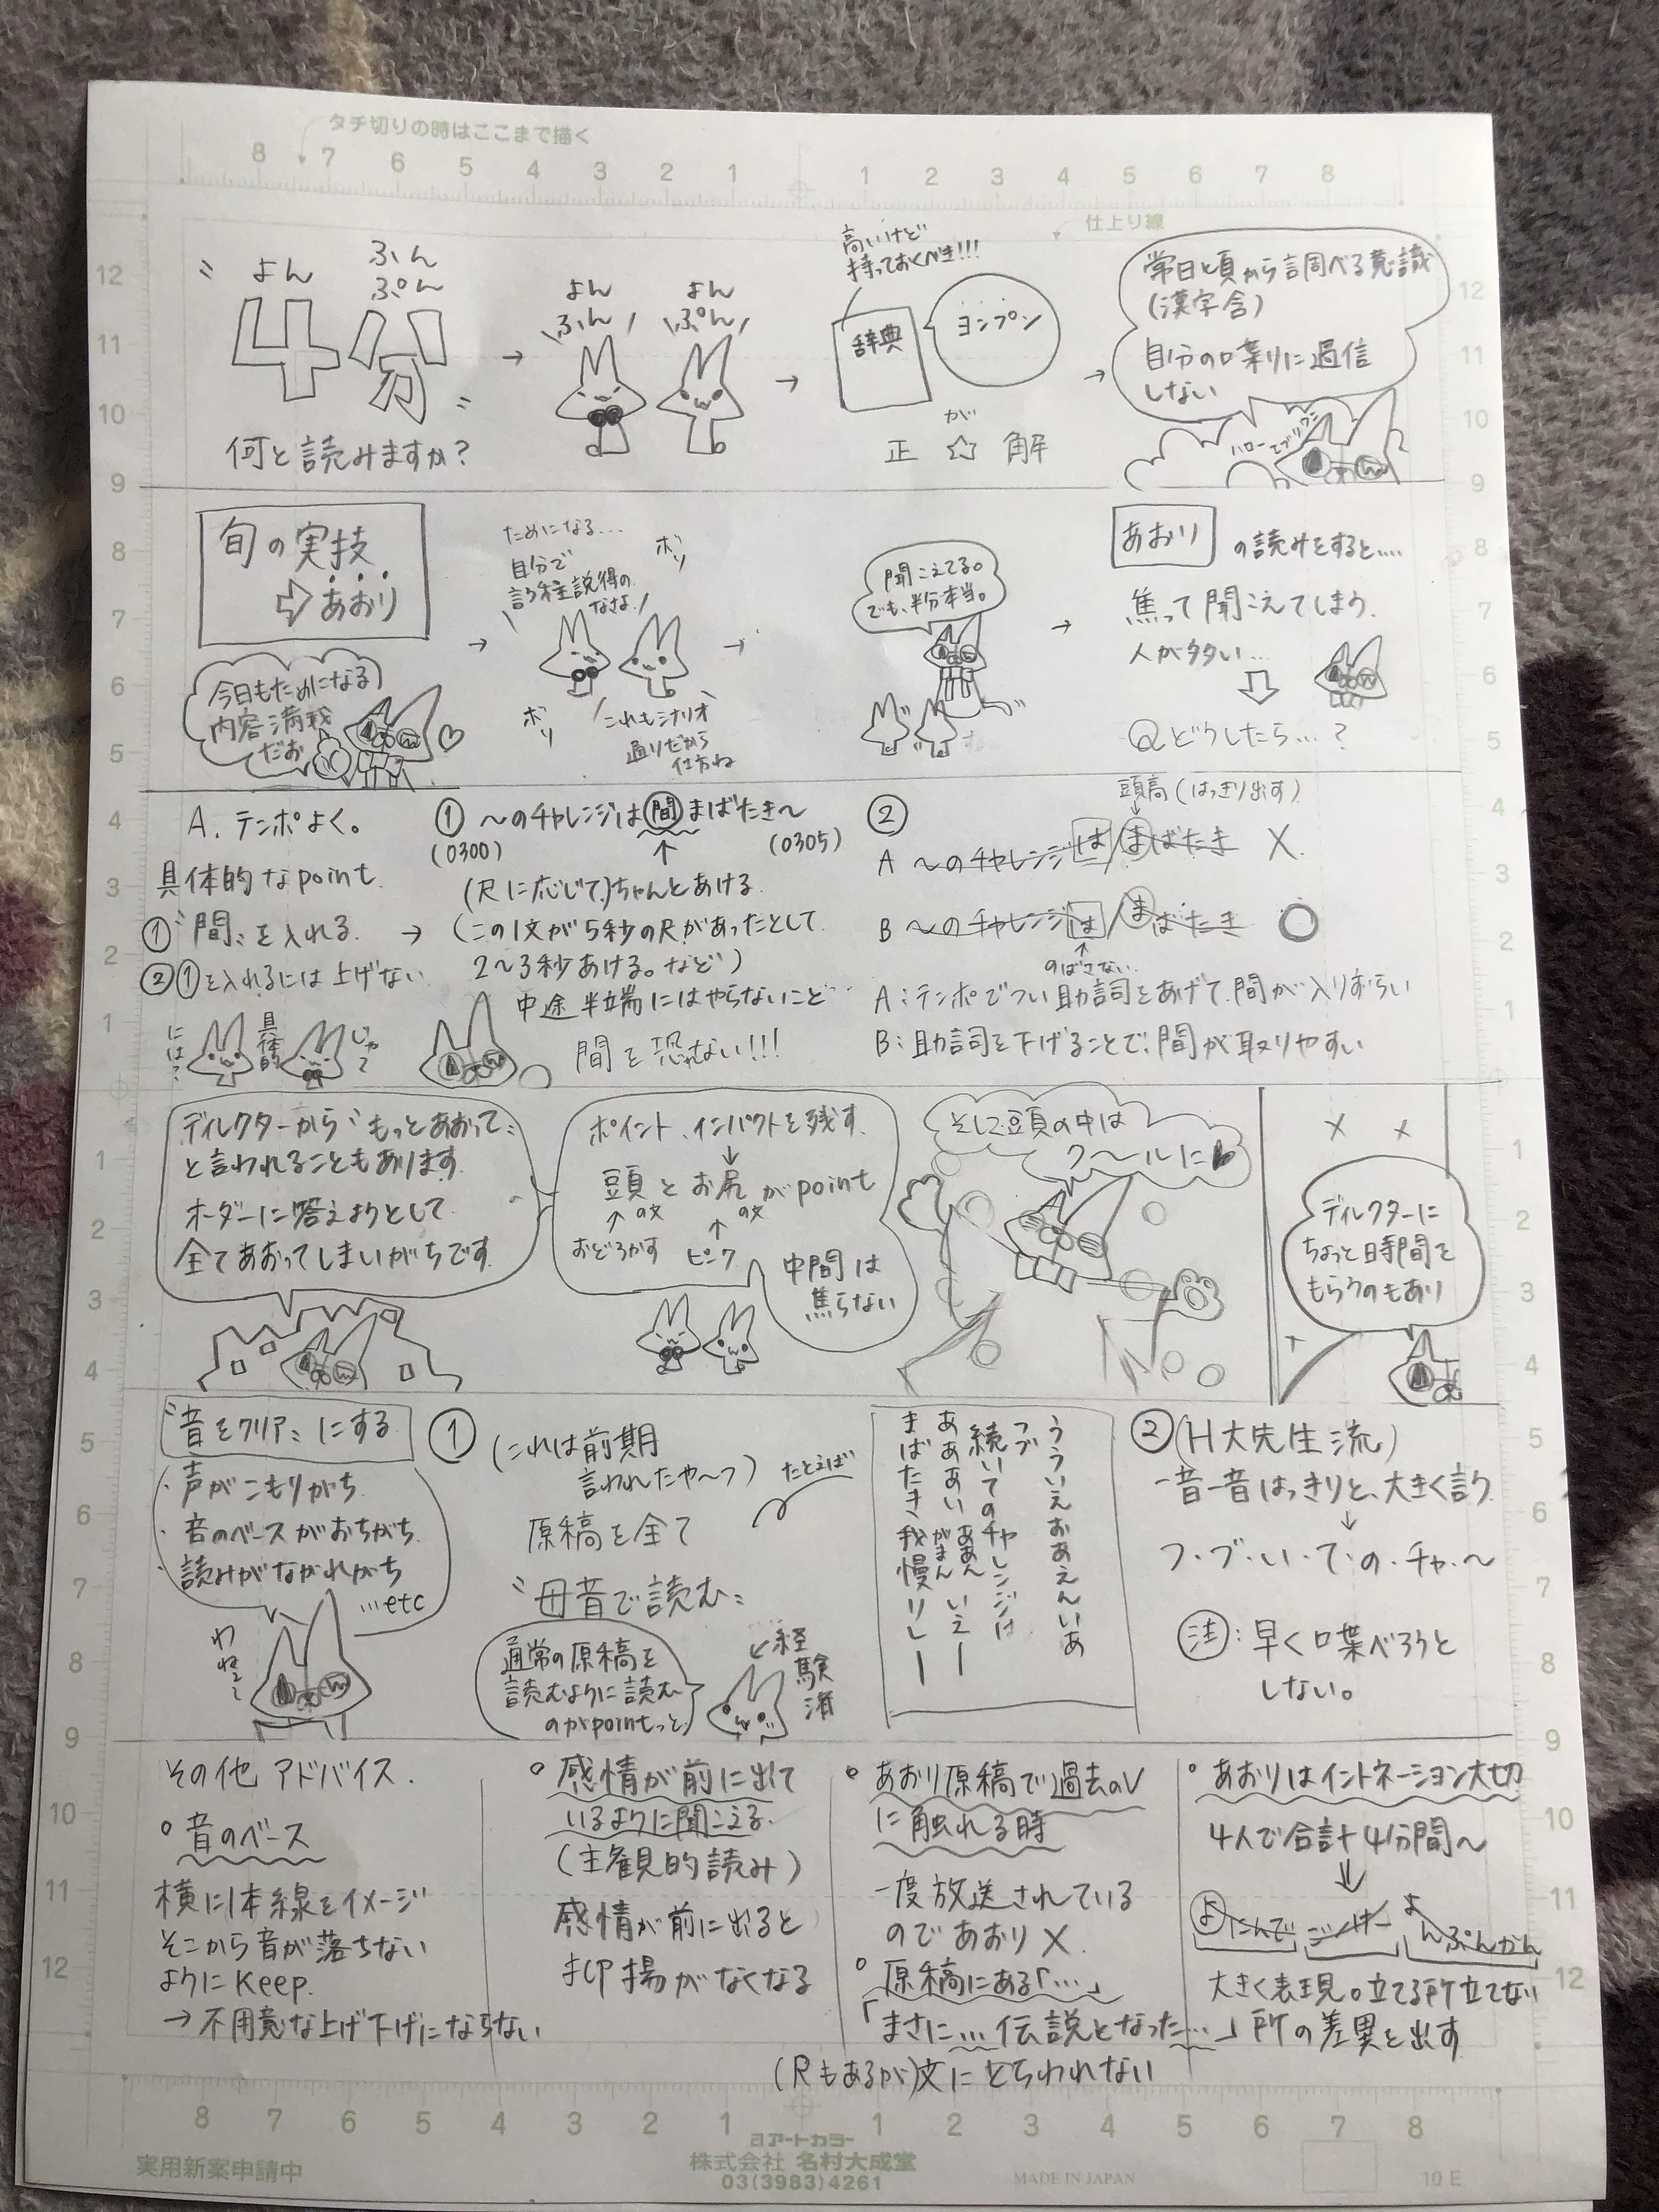 タチ切りの時はここまで描く
8 7 6 5 4 3 2 1 1 2 3 4 5 6 7 8
仕上り線
よん ふん ぷん
〝4分〟
何と読みますか?
→
よん ふん
よん ぷん
→
高いけど
持っておくべき!!!
辞典
ヨンプン
が
正☆解
→
常日頃から調べる意識
(漢字含)
自分の喋りに過信
しない
ハローエブリワン
旬の実技
⇨あおり
今日もためになる
内容満載
だお
→
ためになる…
自分で
言う程説得の
なさ!
ボソ
ボソ
これもシナリオ
通りだから
仕方ね
→
聞こえてる。
でも、半分本当。
→
あおり の読みをすると….
焦って聞こえてしまう.
人が多い…
Qどうしたら…?
A. テンポよく。
具体的なpoint.
①〝間〟を入れる. →
②①を入れるには上げない
には?
具体的
じゃあ
① 〜のチャレンジは間まばたき〜
(0300) (0305)
(尺に応じて.)ちゃんとあける.
(この1文が5秒の尺があったとして
2〜3秒あける。など)
中途半端にはやらないこと
間を恐れない!!!
②
頭高(はっきり出す)
A 〜のチャレンジは/まばたき ×.
B 〜のチャレンジは/まばたき ○
のばさない.
A:テンポでつい助詞をあげて、間が入りずらい
B:助詞を下げることで、間が取りやすい
ディレクターから〝もっとあおって〟
と言われることもあります.
オーダーに答えようとして
全てあおってしまいがちです.
ポイント、インパクトを残す.
↓
頭の文とお尻の文がpoint
↑
おどろかす
↑
ピンク
中間は
焦らない
そして頭の中は
ク〜ルに
ディレクターに
ちょっと時間を
もらうのもあり
〝音をクリア〟にする
・声がこもりがち
・音のベースがおちがち.
・読みがながれがち
…etc
①
(これは前期
言われたや〜つ)
たとえば
原稿を全て
〝母音で読む〟
通常の原稿を
読むように読む
のがpointっと
←経験済
うういえおあえんいあ
続いてのチャレンジは
ああああい ああん いえー
まばたき我慢リレー
がまん
②(H大先生流)
一音一音はっきりと、大きく言う
↓
ツ・ヅ・い・て・の・チャ・〜
注:早く喋べろうと
しない。
その他アドバイス.
○音のベース
横に1本線をイメージ
そこから音が落ちない
ようにKeep.
→不用意な上げ下げにならない
○感情が前に出て
いるように聞こえる.
(主観的読み)
感情が前に出ると
抑揚がなくなる
○あおり原稿で過去のV
に触れる時
一度放送されている
のであおり×.
○原稿にある「…」
「まさに…伝説となった…」
(尺もあるが)文にとらわれない
○あおりはイントネーション大切
4人で合計4分間〜
↓
よにんで ごーけー よんぷんかん
大きく表現。立てる所立てない
所の差異を出す
8 7 6 5 4 3 2 1 1 2 3 4 5 6 7 8
実用新案申請中
aアートカラー
株式会社 名村大成堂
03(3983)4261
MADE IN JAPAN
10 E